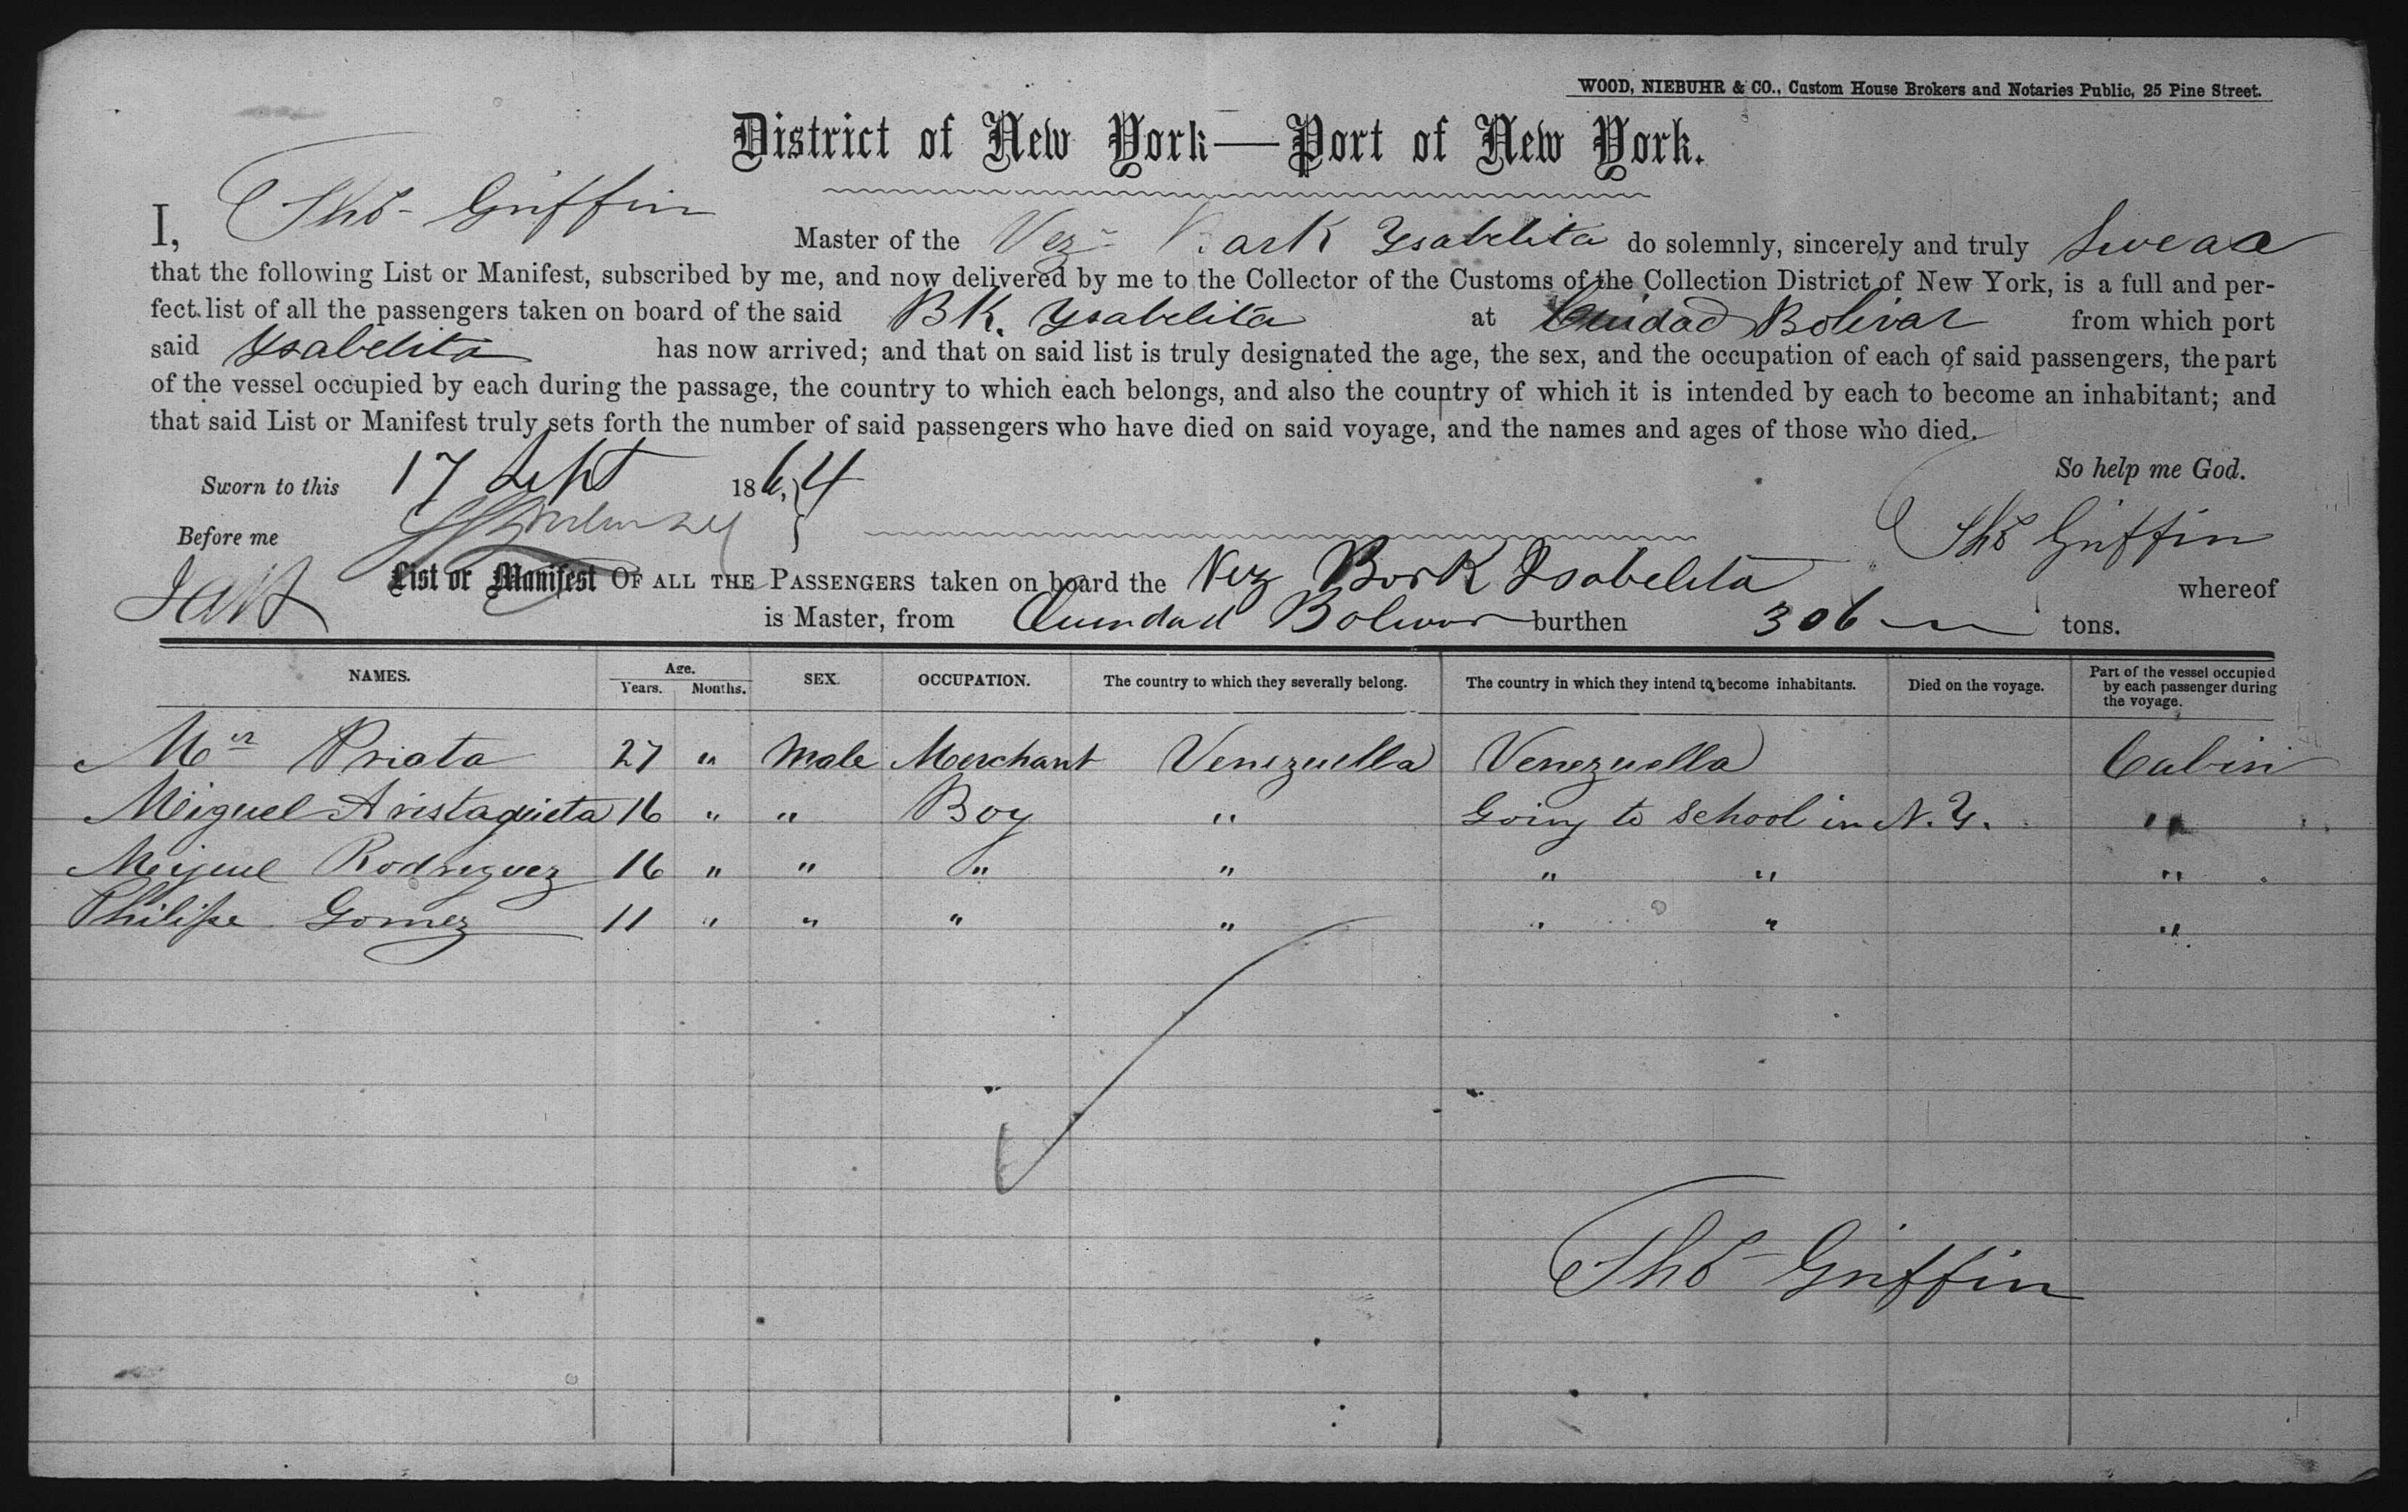 WOOD, NIEBUHR & CO., Custom House Brokers and Notaries Public, 25 Pine Street.
District of New York—Port of New York.
I, Thos Griffin Master of the Vez Bark Ysabelita do solemnly, sincerely and truly Swear
that the following List or Manifest, subscribed by me, and now delivered by me to the Collector of the Customs of the Collection District of New York, is a full and per-
fect list of all the passengers taken on board of the said BK. Ysabelita at Cuidad Bolivar from which port
said Ysabelita has now arrived; and that on said list is truly designated the age, the sex, and the occupation of each of said passengers, the part
of the vessel occupied by each during the passage, the country to which each belongs, and also the country of which it is intended by each to become an inhabitant; and
that said List or Manifest truly sets forth the number of said passengers who have died on said voyage, and the names and ages of those who died.
So help me God.
Sworn to this 17 Sept 186,4
Before me
Thos Griffin
List or Manifest OF ALL THE PASSENGERS taken on board the Vez Bark Isabelita whereof
is Master, from Cuindad Bolivar burthen 306 tons.
NAMES. Age. Years. Months. SEX. OCCUPATION. The country to which they severally belong. The country in which they intend to become inhabitants. Died on the voyage. Part of the vessel occupied by each passenger during the voyage.
Mr Priata 27 " Male Merchant Venezuella Venezuella Cabin
Miguel Aristaquieta 16 " " Boy " Going to School in N.Y. "
Miguel Rodriguez 16 " " " " " " "
Philipe Gomez 11 " " " " " " "
Thos Griffin